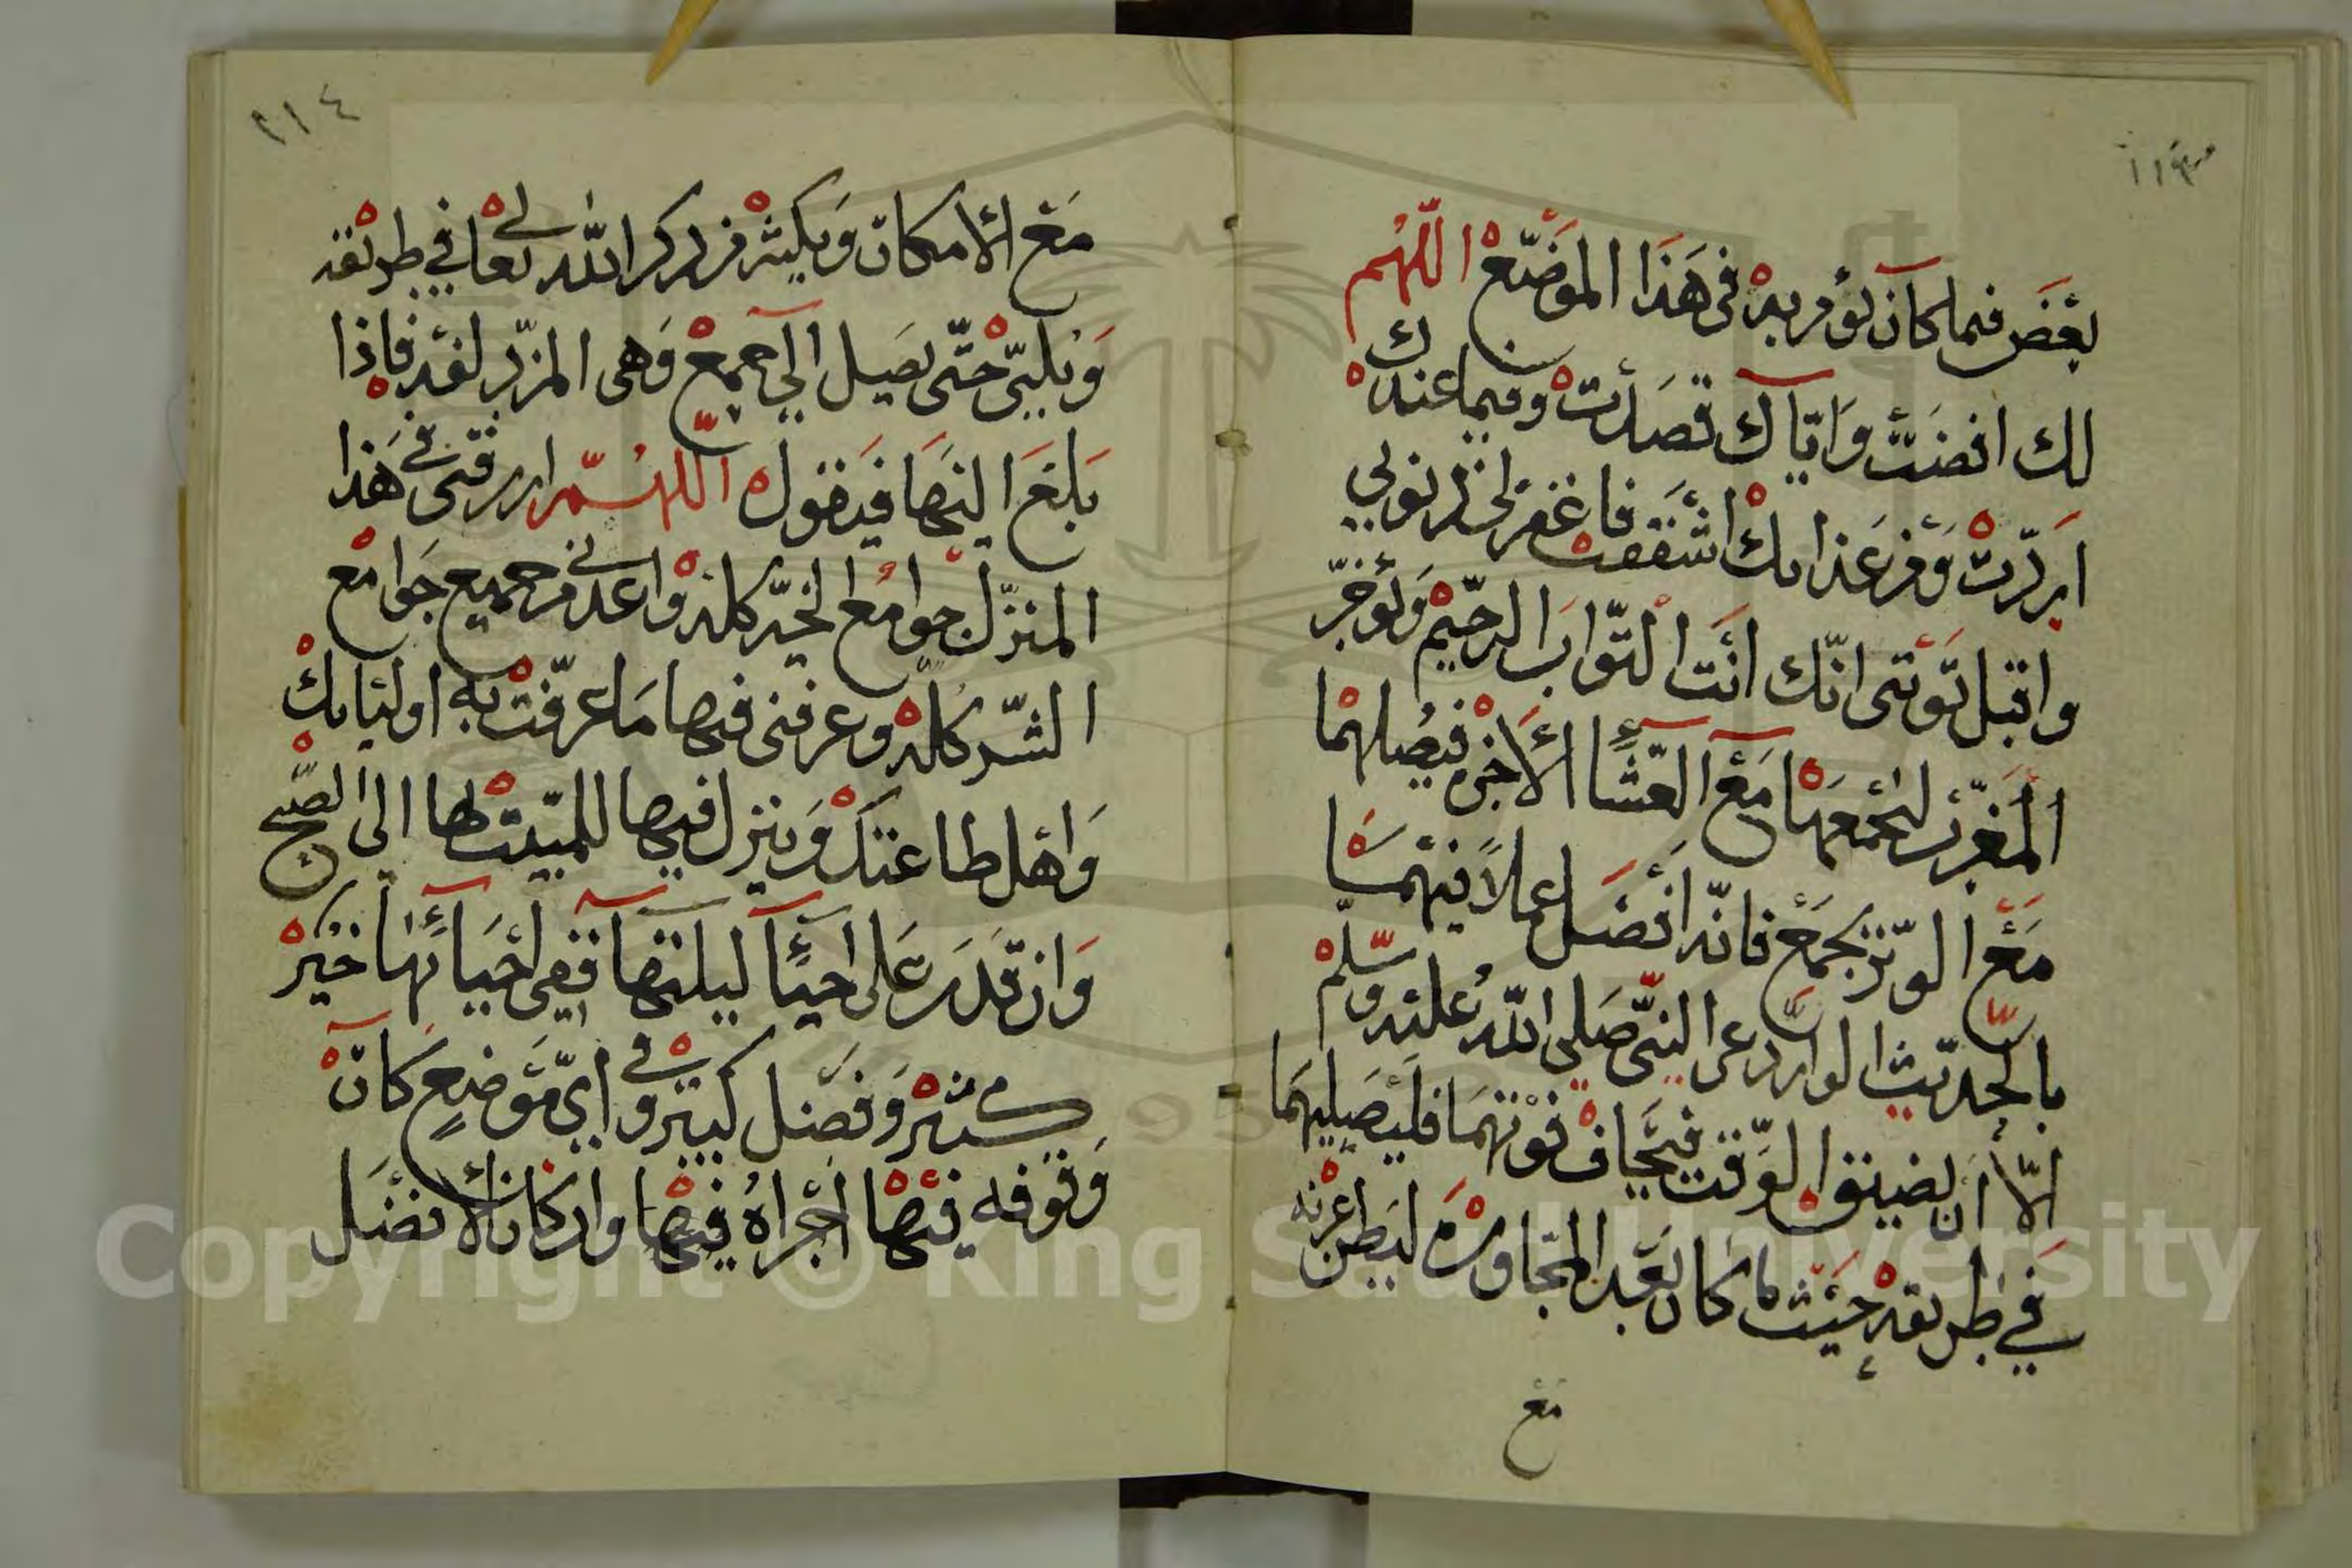 بعض فما كان يؤمر به في هذا الموضع اللهم
لك افضت واياك قصدت وفيما عندك
اردت ومن عذابك اشفقت فاغفر لي ذنوبي
واقبل توبتي انك انت التواب الرحيم ويؤخر
المغرب ليجمعها مع العشا الاخره فيصلهما
مع الوتر بجمع فانه افضل عملا فيهما
بالحديث الوارد عن النبي صلى الله عليه وسلم
الا ان يضيق الوقت فيخاف فوتهما فليصليهما
في طريقه حيث ما كان بعد المجاوزه لبطن عرنه
مع
٢١٤
مع الامكان ويكثر من ذكر الله تعالى في طريقه
ويلبي حتى يصل الى جمع وهى المزدلفه فاذا
بلغ اليها فيقول اللهم ارزقني في هذا
المنزل جوامع الخير كله واعذني من جميع جوامع
الشر كله وعرفني فيها ما عرفت به اوليايك
واهل طاعتك وينزل فيها للمبيت بها الى الصبح
وان قدر على احيآ ليلتها ففي احيائها خير
كثير وفضل كبير وفي اي موضع كان
وقوفه فيها اجزاه فيها وان كان الافضل
Copyright © King Saud University